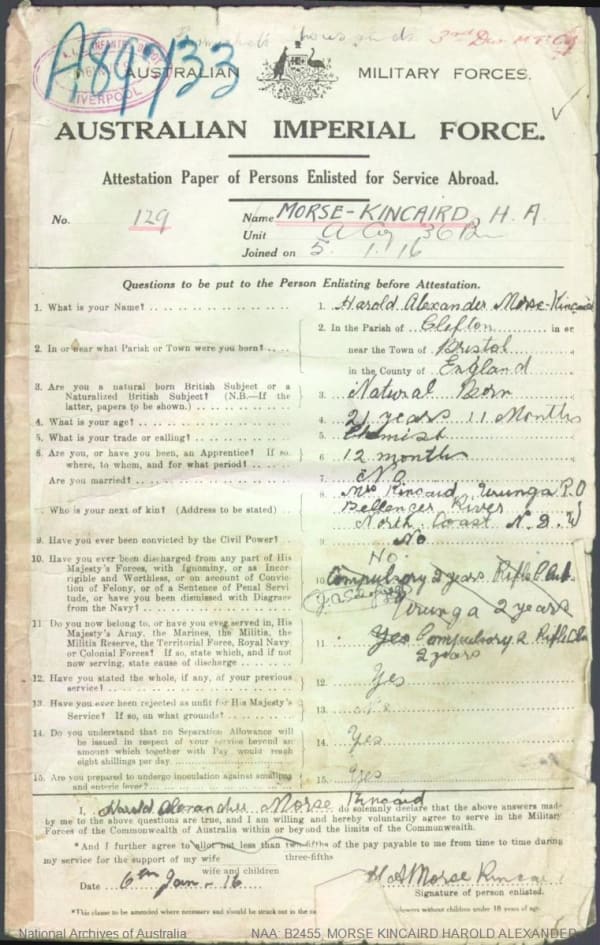 3rd Div M.T. Coy
A89733
A.I.F. INFANTRY DEPOT
LIVERPOOL
AUSTRALIAN MILITARY FORCES.
AUSTRALIAN IMPERIAL FORCE.
Attestation Paper of Persons Enlisted for Service Abroad.
No. 129 Name MORSE-KINCAIRD, H. A.
Unit A Coy 36 Bn
Joined on 5. 1. 16
Questions to be put to the Person Enlisting before Attestation.
1. What is your Name? 1. Harold Alexander Morse-Kincaird
2. In or near what Parish or Town were you born? 2. In the Parish of Clefton in or
near the Town of Bristol
in the County of England
3. Are you a natural born British Subject or a
Naturalized British Subject? (N.B.—If the
latter, papers to be shown.) 3. Natural Born
4. What is your age? 4. 21 years 11 Months
5. What is your trade or calling? 5. Chemist
6. Are you, or have you been, an Apprentice? If so,
where, to whom, and for what period? 6. 12 months
Are you married? 7. No
Who is your next of kin? (Address to be stated) 8. Mrs Kincaid, Urunga P.O
Bellenger River
North Coast N.S.W
9. Have you ever been convicted by the Civil Power? 9. No
10. Have you ever been discharged from any part of His
Majesty's Forces, with Ignominy, or as Incor-
rigible and Worthless, or on account of Convic-
tion of Felony, or of a Sentence of Penal Servi-
tude, or have you been dismissed with Disgrace
from the Navy? No
10. Compulsory 2 years Rifle Club
Urunga 2 years
11. Do you now belong to, or have you ever served in, His
Majesty's Army, the Marines, the Militia, the
Militia Reserve, the Territorial Force, Royal Navy
or Colonial Forces? If so, state which, and if not
now serving, state cause of discharge 11. Yes Compulsory 2 Rifle Club
2 years
12. Have you stated the whole, if any, of your previous
service? 12. Yes
13. Have you ever been rejected as unfit for His Majesty's
Service? If so, on what grounds? 13. No
14. Do you understand that no Separation Allowance will
be issued in respect of your service beyond an
amount which together with Pay would reach
eight shillings per day. 14. Yes
15. Are you prepared to undergo inoculation against smallpox
and enteric fever? 15. Yes
I, Harold Alexander Morse Kincaid do solemnly declare that the above answers made
by me to the above questions are true, and I am willing and hereby voluntarily agree to serve in the Military
Forces of the Commonwealth of Australia within or beyond the limits of the Commonwealth.
*And I further agree to allot not less than two-fifths of the pay payable to me from time to time during
three-fifths
my service for the support of my wife
wife and children
Date 6th Jan-16 H A Morse Kincaid
Signature of person enlisted.
*This clause to be amended where necessary and should be struck out in the widowers without children under 18 years of age.
National Archives of Australia NAA: B2455, MORSE KINCAIRD HAROLD ALEXANDER